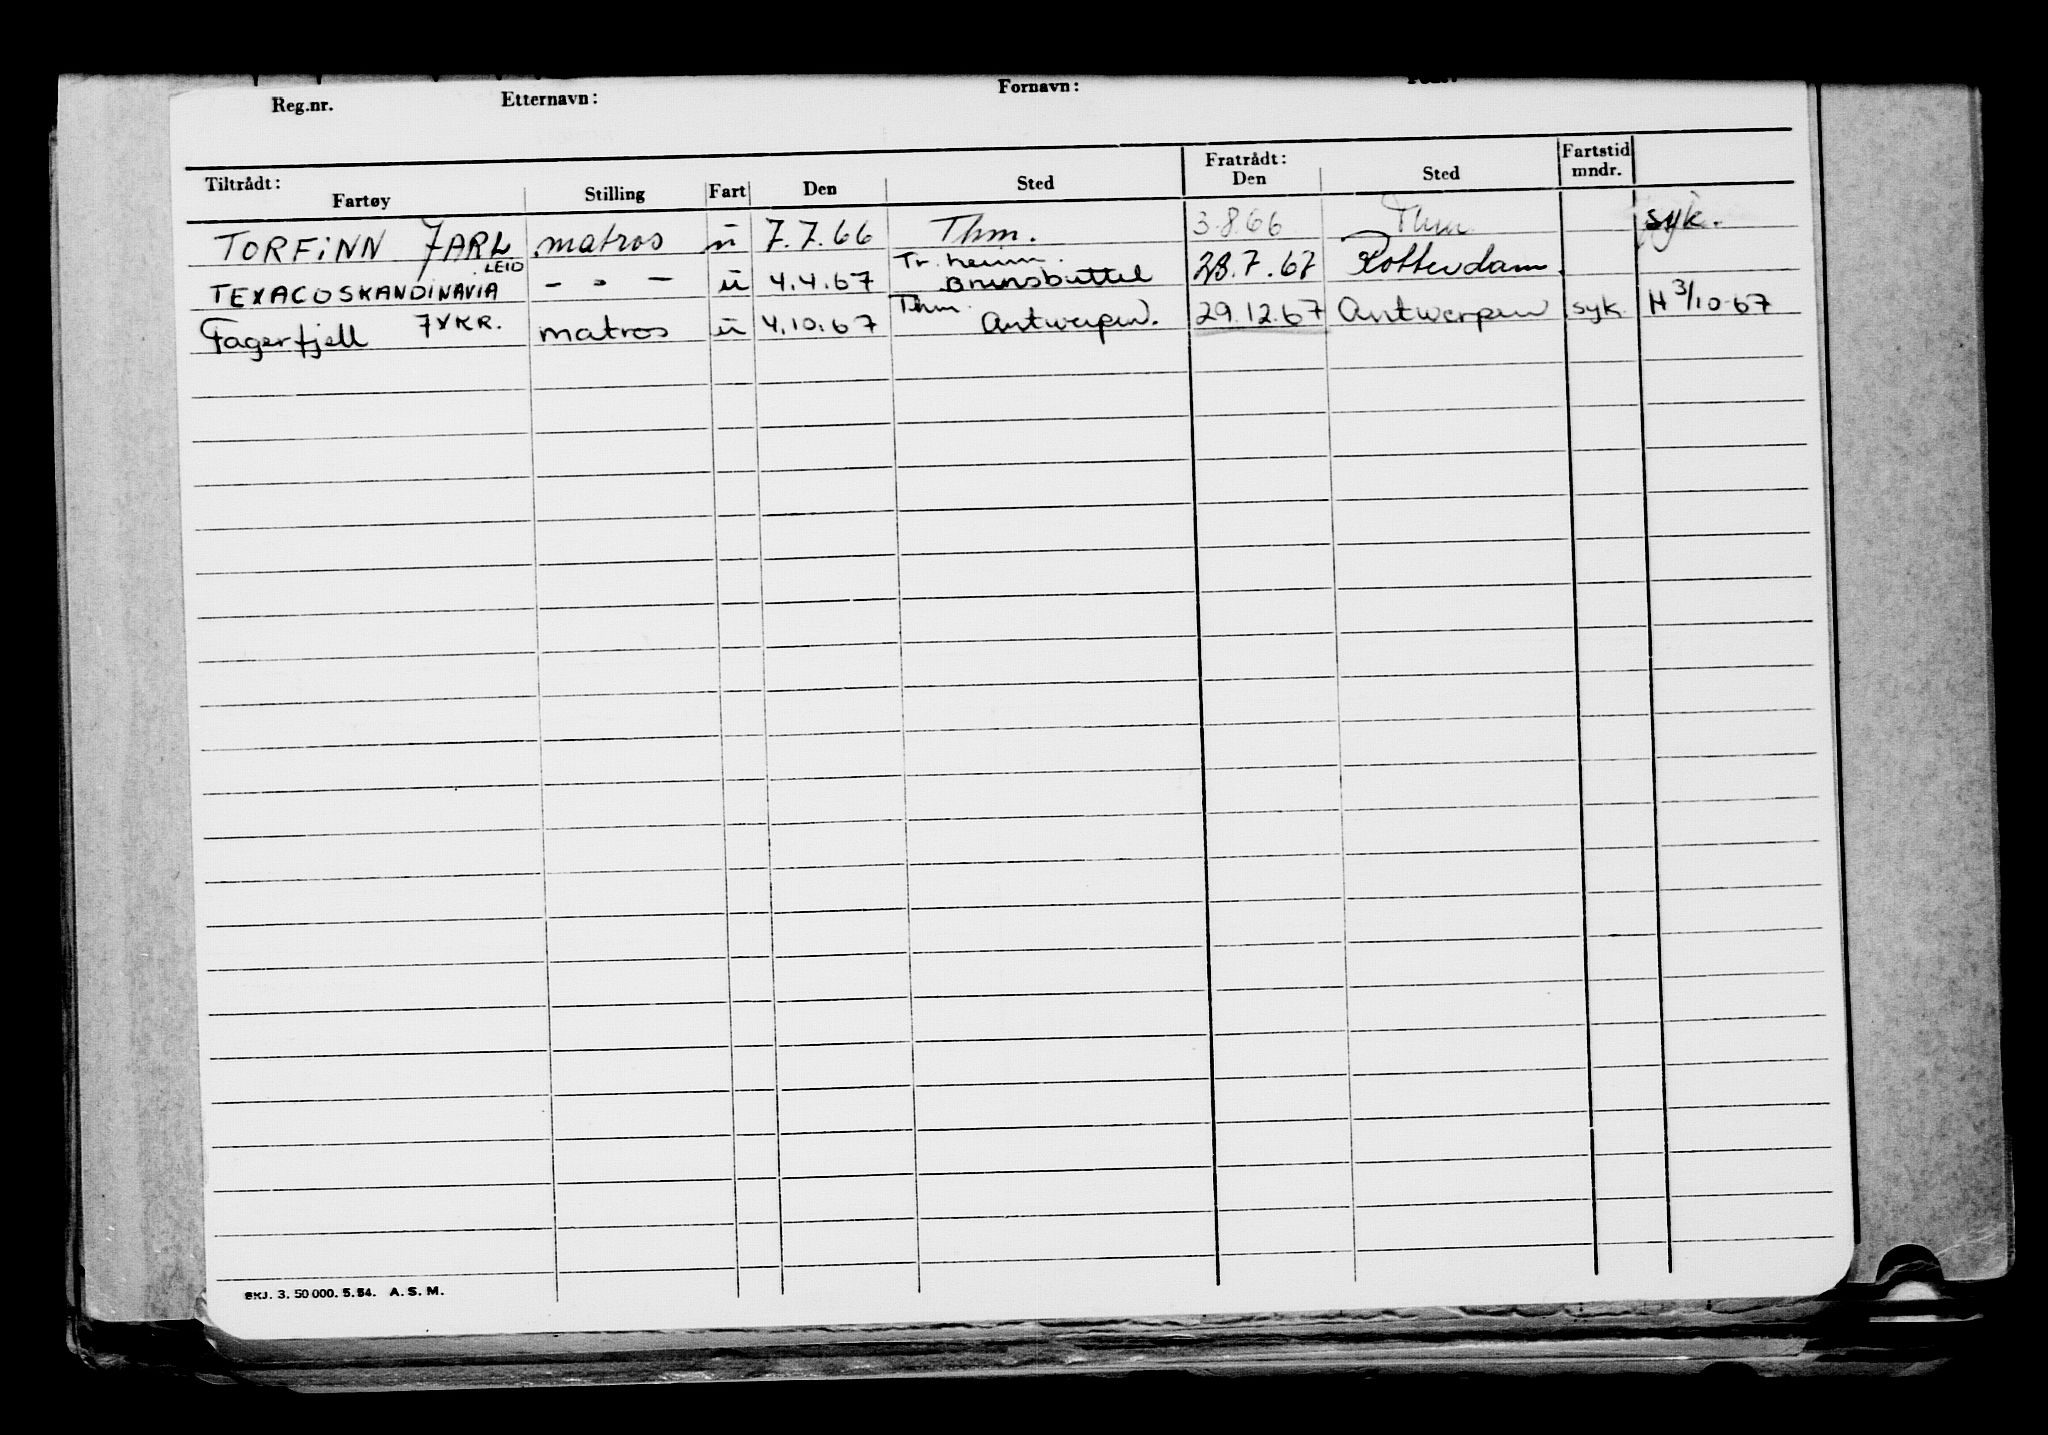 Reg.nr. Etternavn: Fornavn:
Tiltrådt: Fratrådt: Fartstid
Fartøy Stilling Fart Den Sted Den Sted mndr.
TORFINN JARL matros u 7.7.66 Thm. 3.8.66 Thm syk.
LEID Tr.heim.
TEXACO SKANDINAVIA - " - u 4.4.67 Brunsbuttel 28.7.67 Rotterdam.
Fagerfjell matros u 4.10.67 Thm. Antwerpen. 29.12.67 Antwerpen syk H 3/10-67
SKJ. 3. 50 000. 5. 54. A. S. M.